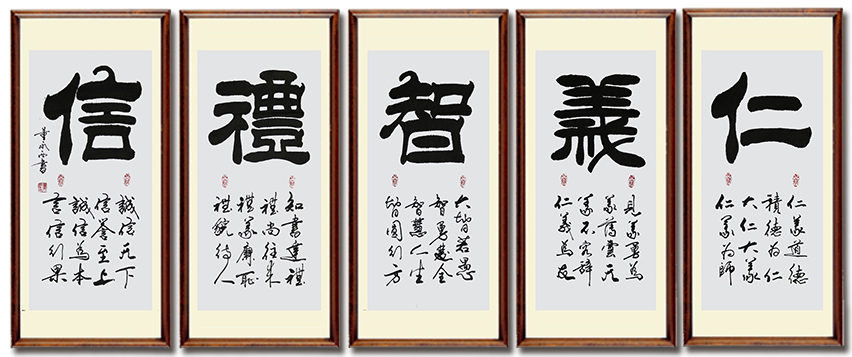 仁
仁義道德
積德為仁
大仁大義
仁義為師
義
見義勇為
義薄雲天
義不容辭
仁義為友
智
大智若愚
智勇雙全
智慧人生
智圓行方
禮
知書達禮
禮尚往來
禮義廉恥
禮貌待人
信
誠信天下
信譽至上
誠信為本
言信行果